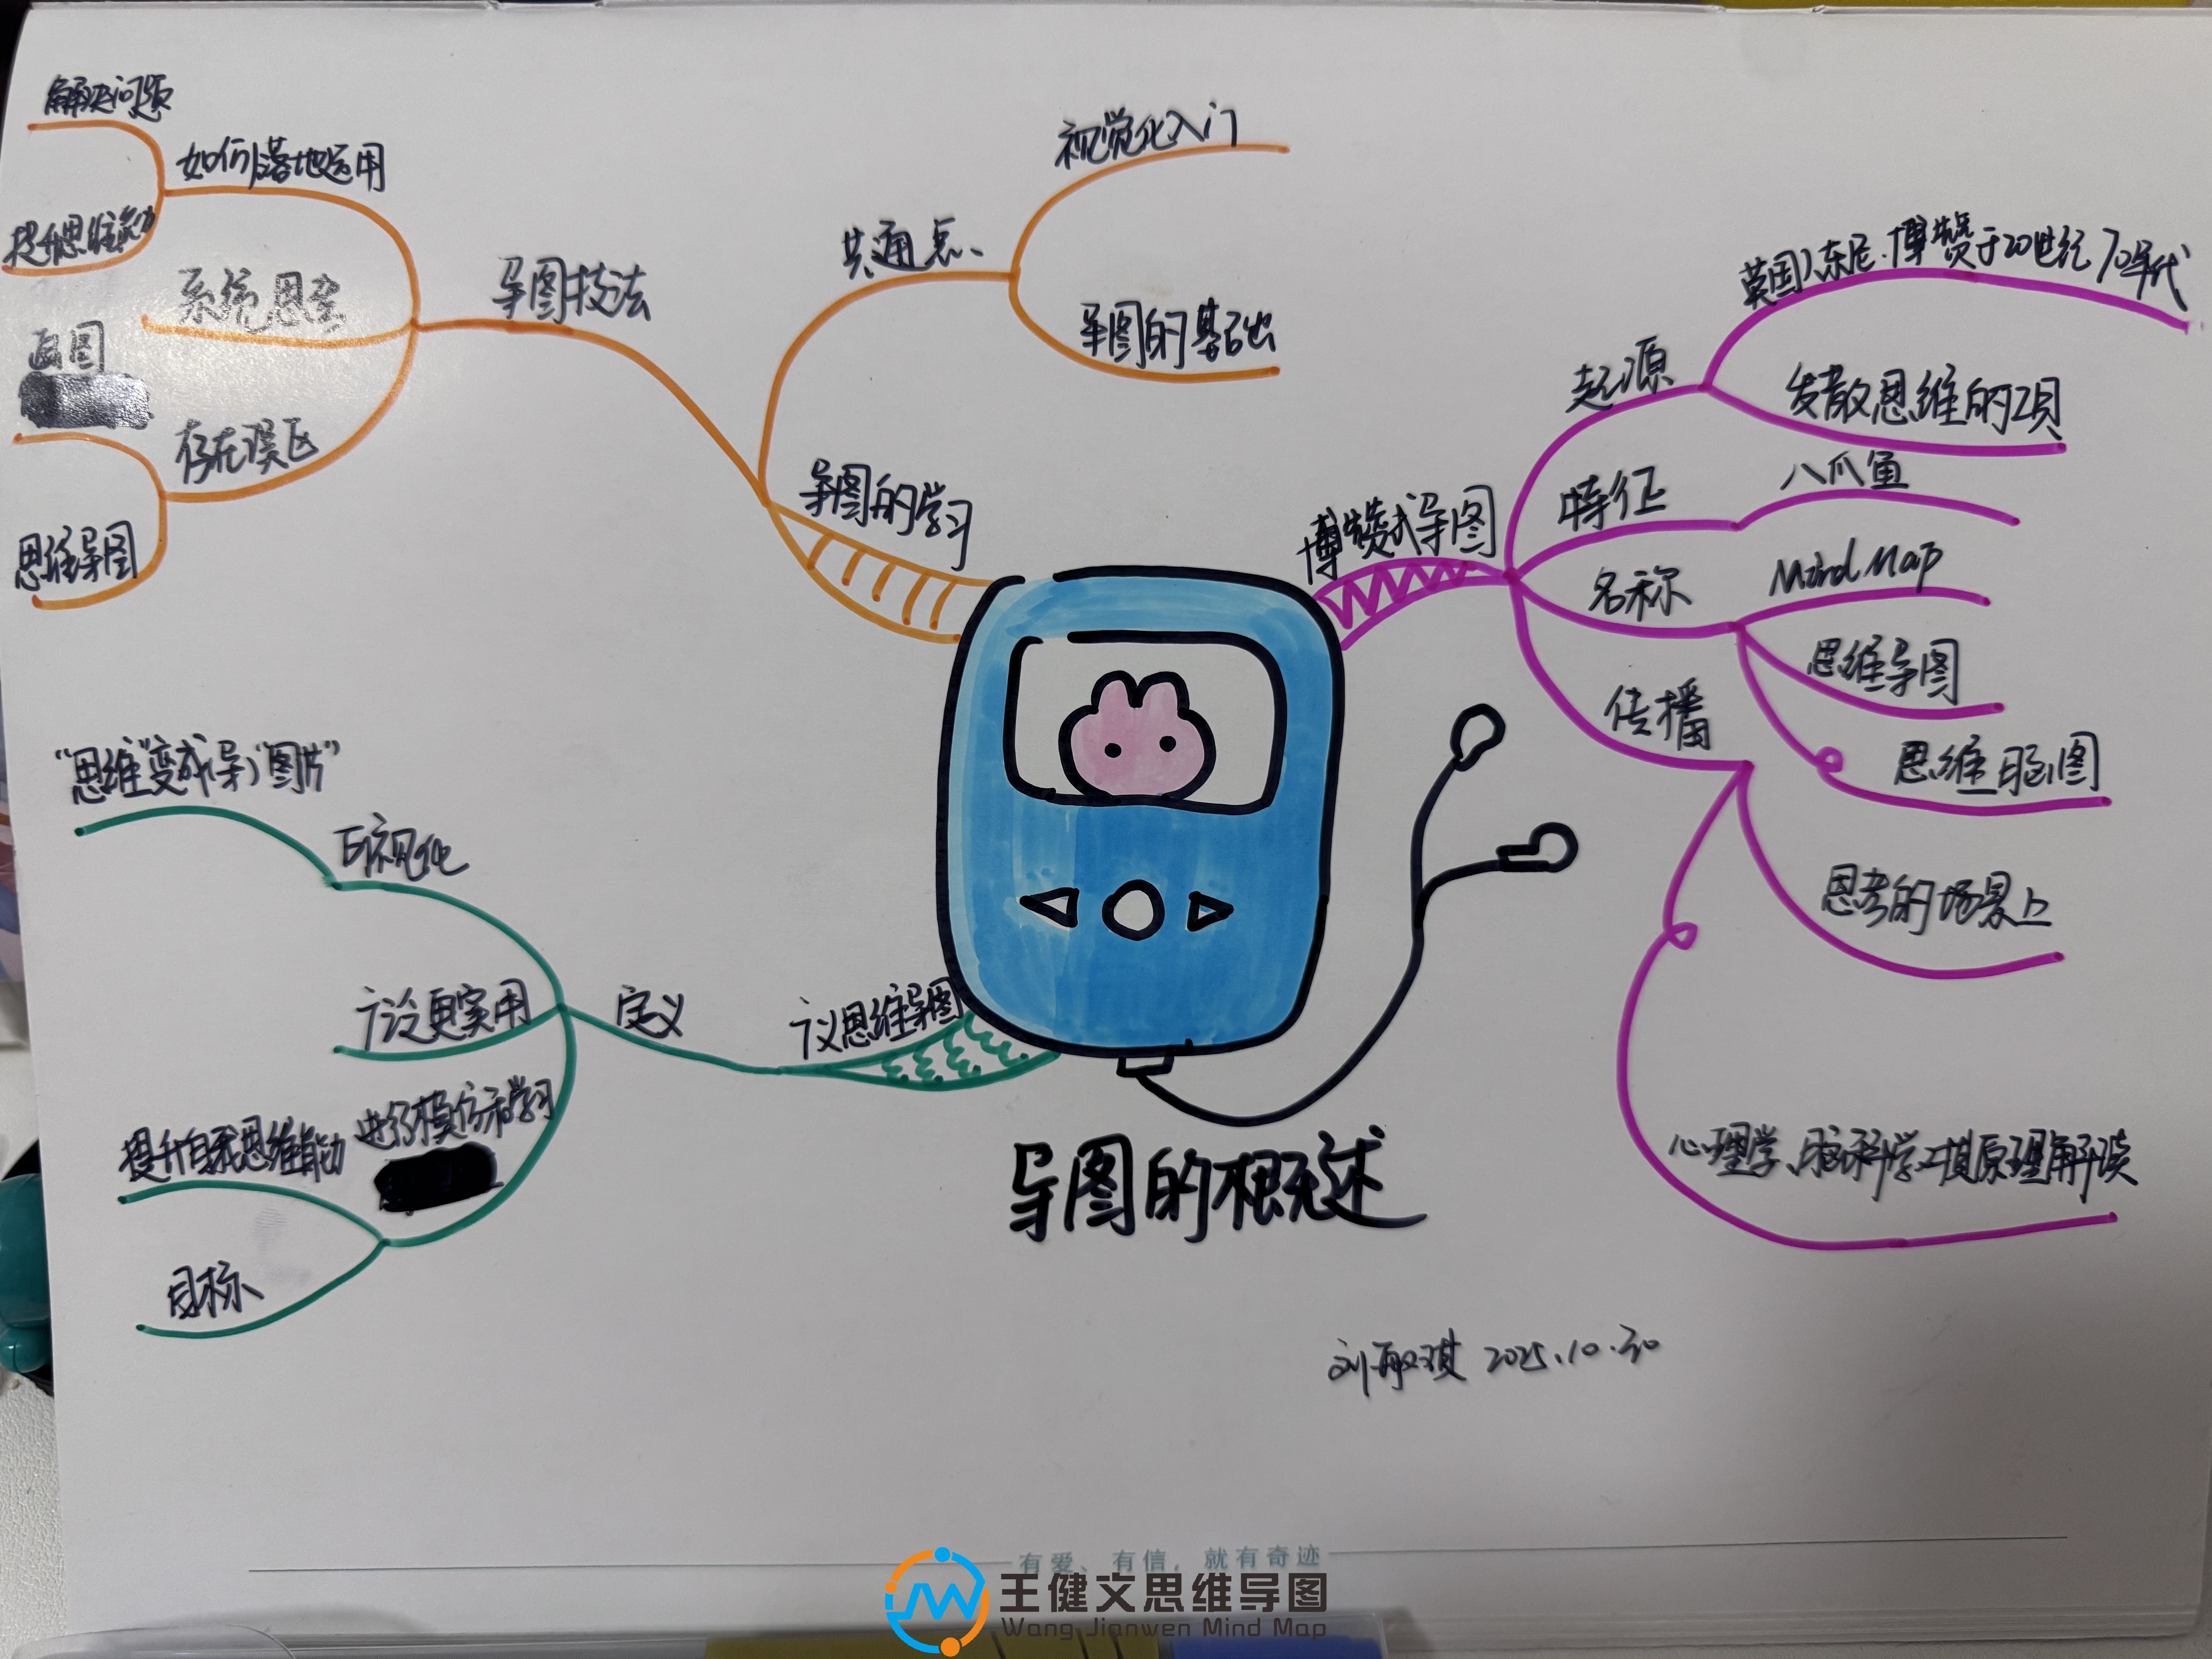 导图的概述
博赞式导图
起源
英国东尼·博赞于20世纪70年代
发散思维的工具
特征
八爪鱼
名称
Mind Map
思维导图
思维脑图
传播
思考的场景上
心理学、脑科学对其原理解读
广义思维导图
定义
可视化
"思维"变成(导)"图片"
广泛更实用
进行模仿和学习
提升自我思维能力
目标
导图的学习
共通点
视觉化入门
导图的基础
导图技法
如何落地运用
解决问题
提升思维能力
系统思考
存在误区
画图
思维导图
2025.10.30
有爱、有信，就有奇迹
王健文思维导图
Wang Jianwen Mind Map